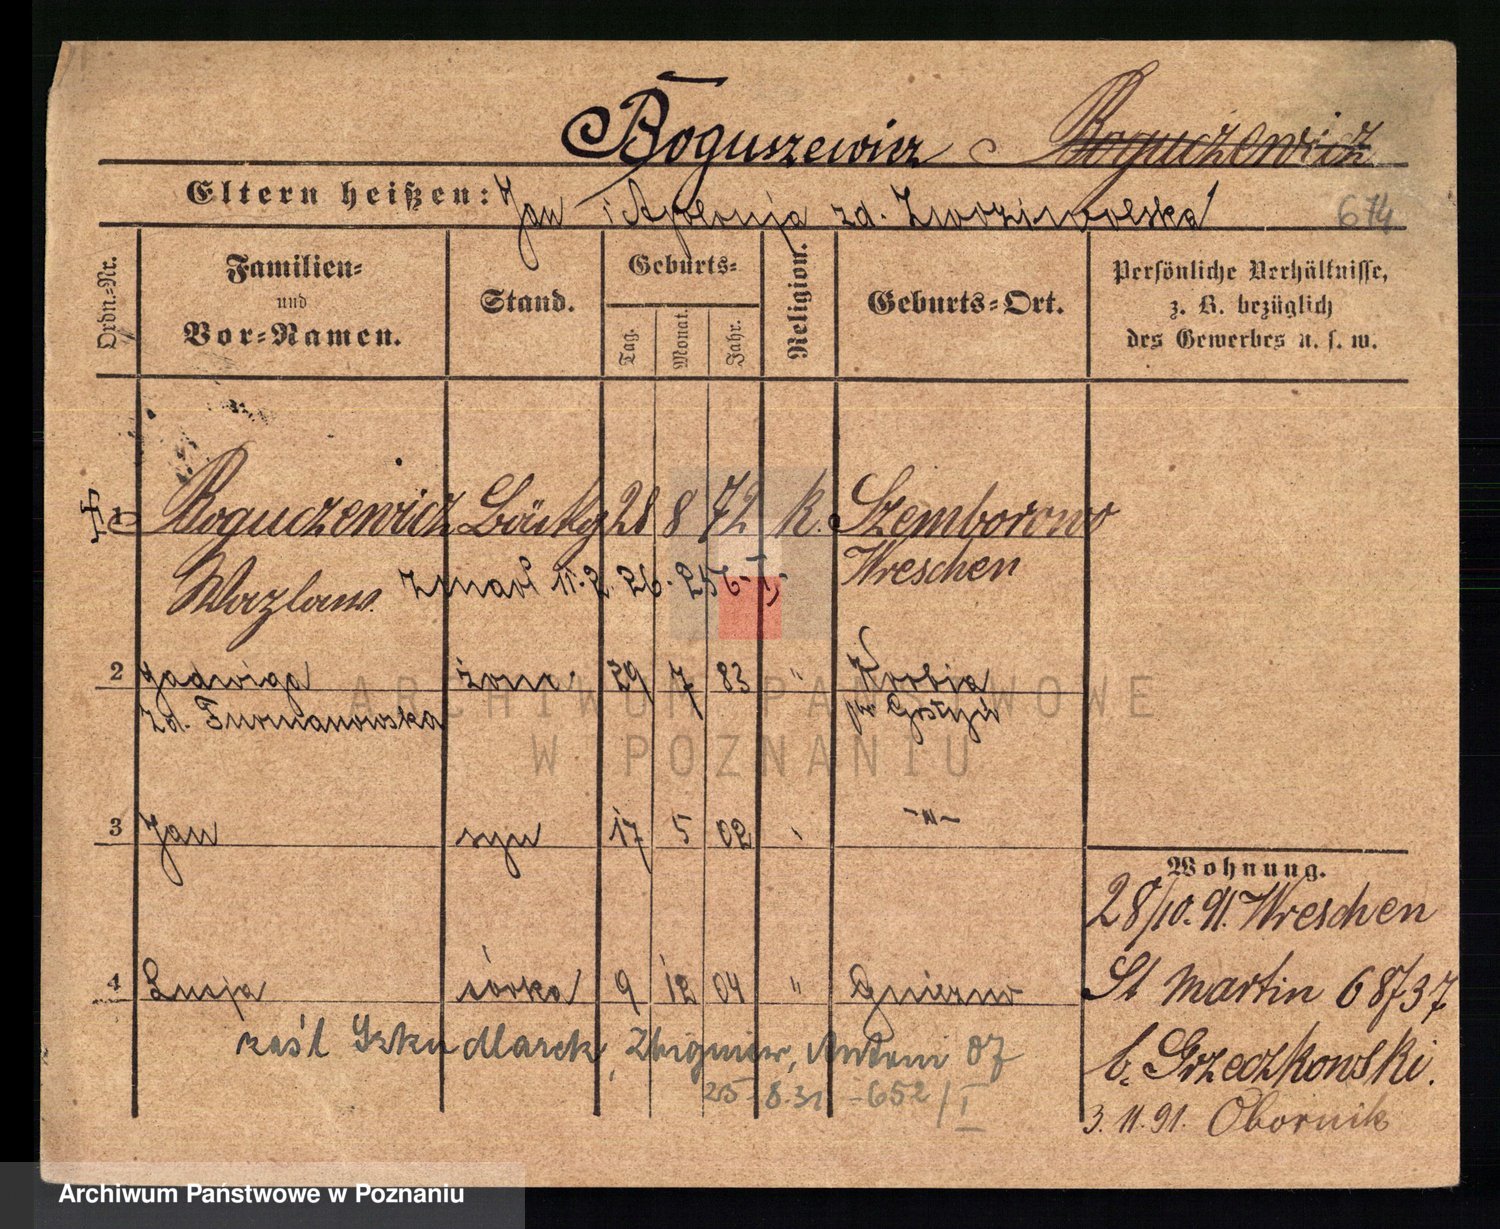 Boguszewicz Boguczewicz
Eltern heißen: Jan i Apolonja zd. Zwoziwolska
674
Ordn.-Nr.
Familien-
und
Vor-Namen.
Stand.
Geburts-
Tag.
Monat.
Jahr.
Religion.
Geburts-Ort.
Persönliche Verhältnisse,
z. B. bezüglich
des Gewerbes u. s. w.
1 Boguczewicz 28 8 72 K. Szemborowo
Wazlaw zmarł 11.2.26. Wreschen
2 Jadwiga żona 29 7 83 " Krobia
zd. Furmanowska
3 Jan syn 17 5 02 " -"-
4 Lucja córka 9 12 04 " Gniezno
zaśl Szkudlarek, Zbigniew, Antoni 07
25.8.31. -652/I
Wohnung.
28/10.91. Wreschen
St Martin 68/37
b. Grzeczkowski.
3.11.91. Obornik
ARCHIWUM PAŃSTWOWE
W POZNANIU
Archiwum Państwowe w Poznaniu